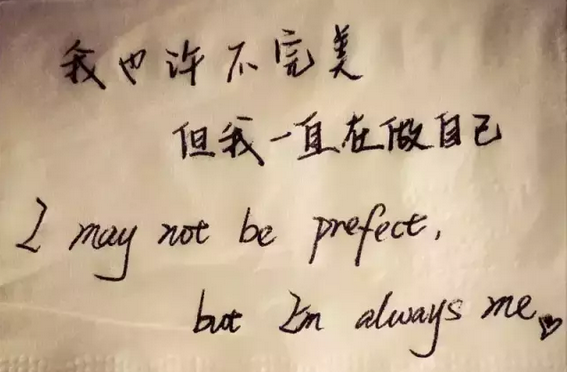 我也许不完美
但我一直在做自己
I may not be prefect,
but I'm always me